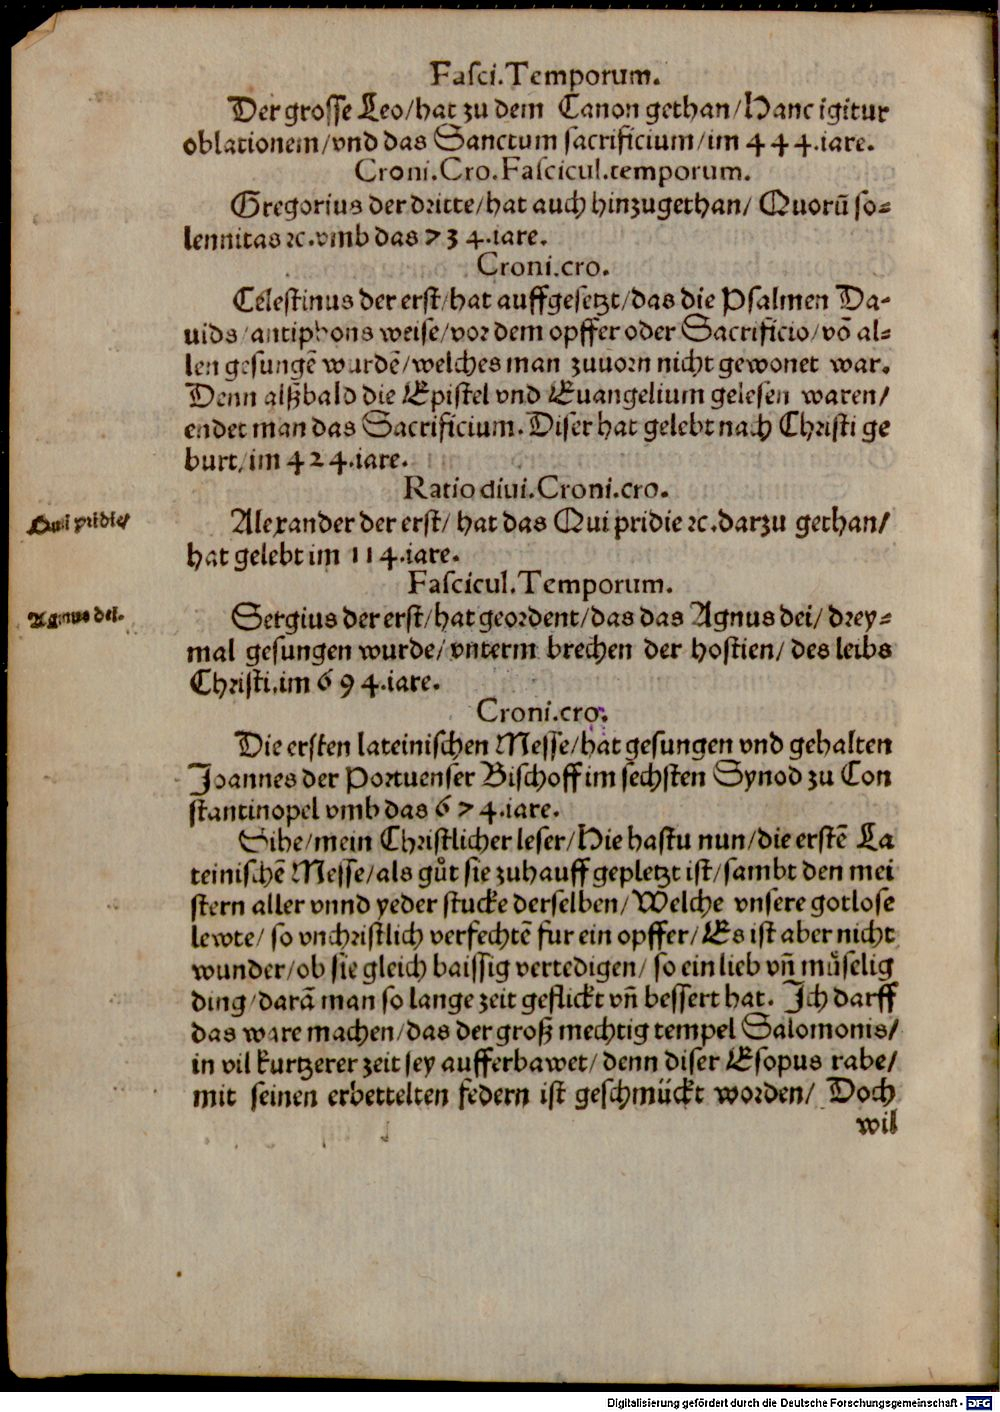 Fasci.Temporum.
Der grosse Leo/hat zu dem Canon gethan/Hanc igitur
oblationem/vnd das Sanctum sacrificium/im 444.iare.
Croni.Cro.Fascicul.temporum.
Gregorius der dritte/hat auch hinzugethan/ Quorū so=
lennitas ꝛc.vmb das 734.iare.
Croni.cro.
Celestinus der erst/hat auffgesetzt/das die Psalmen Da-
uids/antiphons weise/vor dem opffer oder Sacrificio/vō al=
len gesungē wurdē/welches man zuuorn nicht gewonet war.
Denn alßbald die Epistel vnd Euangelium gelesen waren/
endet man das Sacrificium. Diser hat gelebt nach Christi ge
burt/im 424.iare.
Ratio diui.Croni.cro.
Qui pridie/
Alexander der erst/ hat das Qui pridie ꝛc.darzu gethan/
hat gelebt im 114.iare.
Fascicul.Temporum.
Agnus dei.
Sergius der erst/hat geordent/das das Agnus dei/ drey=
mal gesungen wurde/ vnterm brechen der hostien/ des leibs
Christi.im 694.iare.
Croni.cro.
Die ersten lateinischen Messe/hat gesungen vnd gehalten
Joannes der Portuenser Bischoff im sechsten Synod zu Con
stantinopel vmb das 674.iare.
Sihe/mein Christlicher leser/Hie hastu nun/die erstē La
teinischē Messe/als gůt sie zuhauff gepletzt ist/sambt den mei
stern aller vnnd yeder stucke derselben/Welche vnsere gotlose
lewte/ so vnchristlich verfechtē fur ein opffer/Es ist aber nicht
wunder/ob sie gleich baissig vertedigen/ so ein lieb vn̄ můselig
ding/darā man so lange zeit geflickt vn̄ bessert hat. Ich darff
das ware machen/das der groß mechtig tempel Salomonis/
in vil kurtzerer zeit sey aufferbawet/denn diser Esopus rabe/
mit seinen erbettelten federn ist geschmückt worden/ Doch
wil
Digitalisierung gefördert durch die Deutsche Forschungsgemeinschaft - DFG